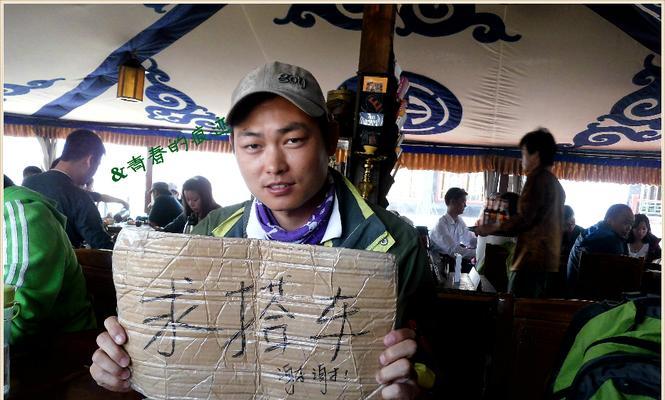 &青春的痕迹
求搭车
谢谢!